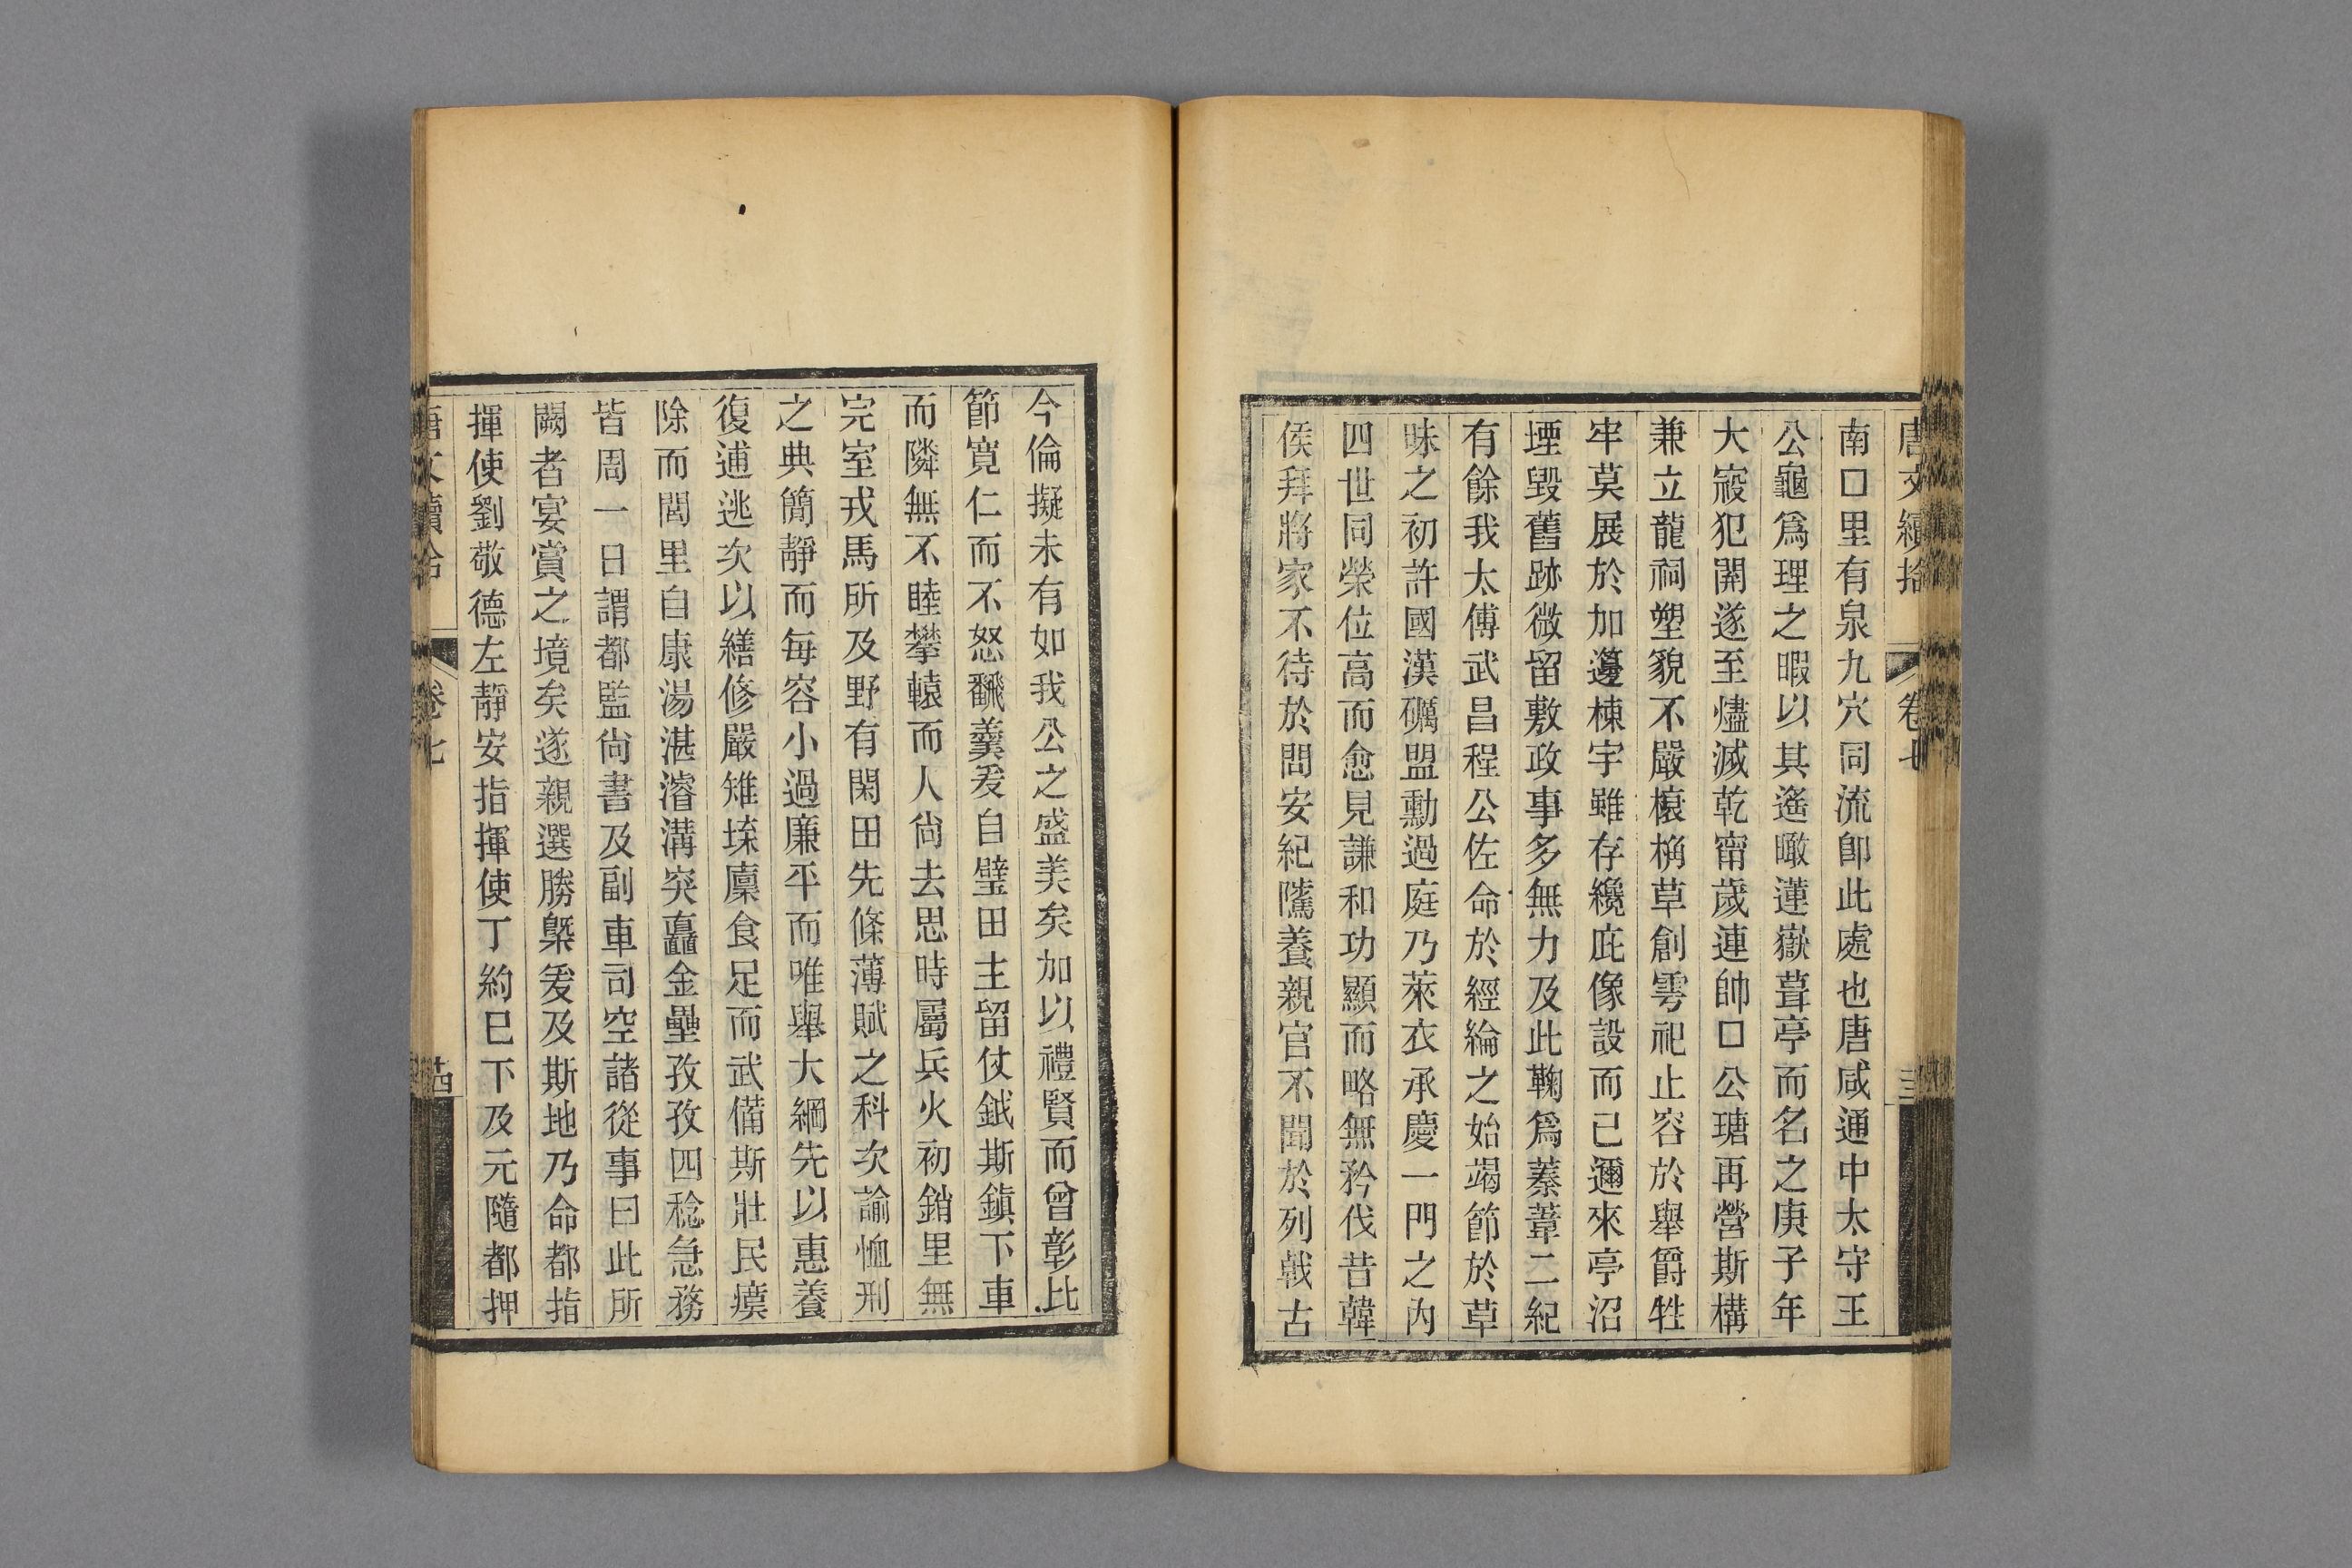 唐文續拾 卷七
南口里有泉九穴同流卽此處也唐咸通中太守王
公龜爲理之暇以其遙瞰蓮嶽葺亭而名之庚子年
大寇犯關遂至燼滅乾甯歲連帥口公瑭再營斯構
兼立龍祠塑貌不嚴榱桷草創雩祀止容於舉爵牲
牢莫展於加籩棟宇雖存纔庇像設而已邇來亭沼
堙毀舊跡微留敷政事多無力及此鞠爲蓁葦二紀
有餘我太傅武昌程公佐命於經綸之始竭節於草
昧之初許國漢礪盟勳過庭乃萊衣承慶一門之內
四世同榮位高而愈見謙和功顯而略無矜伐昔韓
侯拜將家不待於問安紀隲養親官不聞於列戟古
今倫擬未有如我公之盛美矣加以禮賢而曾彰比
節寬仁而不怒飜羹爰自璧田主留仗鉞斯鎭下車
而隣無不睦攀轅而人尙去思時屬兵火初銷里無
完室戎馬所及野有閑田先條薄賦之科次諭恤刑
之典簡靜而每容小過廉平而唯舉大綱先以惠養
復逋逃次以繕修嚴雉垛廩食足而武備斯壯民瘼
除而閭里自康湯湛濬溝突矗金壘孜孜四稔急務
皆周一日謂都監尙書及副車司空諸從事曰此所
闕者宴賞之境矣遂親選勝槩爰及斯地乃命都指
揮使劉敬德左靜安指揮使丁約巳下及元隨都押
唐文續拾 卷七